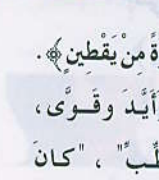 ةً مِنْ يَقْطِينٍ﴾.
أَيَّدَ وقَـوَّى،
طِّبِّ" ، "كـانَ